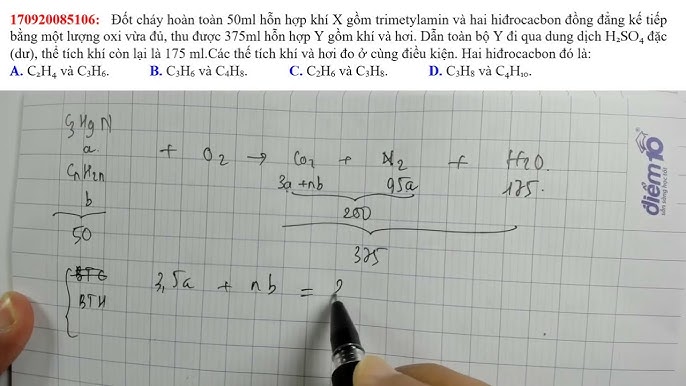 170920085106: Đốt cháy hoàn toàn 50ml hỗn hợp khí X gồm trimetylamin và hai hiđrocacbon đồng đẳng kế tiếp
bằng một lượng oxi vừa đủ, thu được 375ml hỗn hợp Y gồm khí và hơi. Dẫn toàn bộ Y đi qua dung dịch H₂SO₄ đặc
(dư), thể tích khí còn lại là 175 ml.Các thể tích khí và hơi đo ở cùng điều kiện. Hai hiđrocacbon đó là:
A. C₂H₄ và C₃H₆. B. C₃H₆ và C₄H₈. C. C₂H₆ và C₃H₈. D. C₃H₈ và C₄H₁₀.
C₃H₉N
a
CnH2n
b
50
+ O₂ → CO₂ + N₂ + H₂O
3a+nb 0,5a 175
200
375
BTC
BTH
3,5a + nb = 2
điểm10